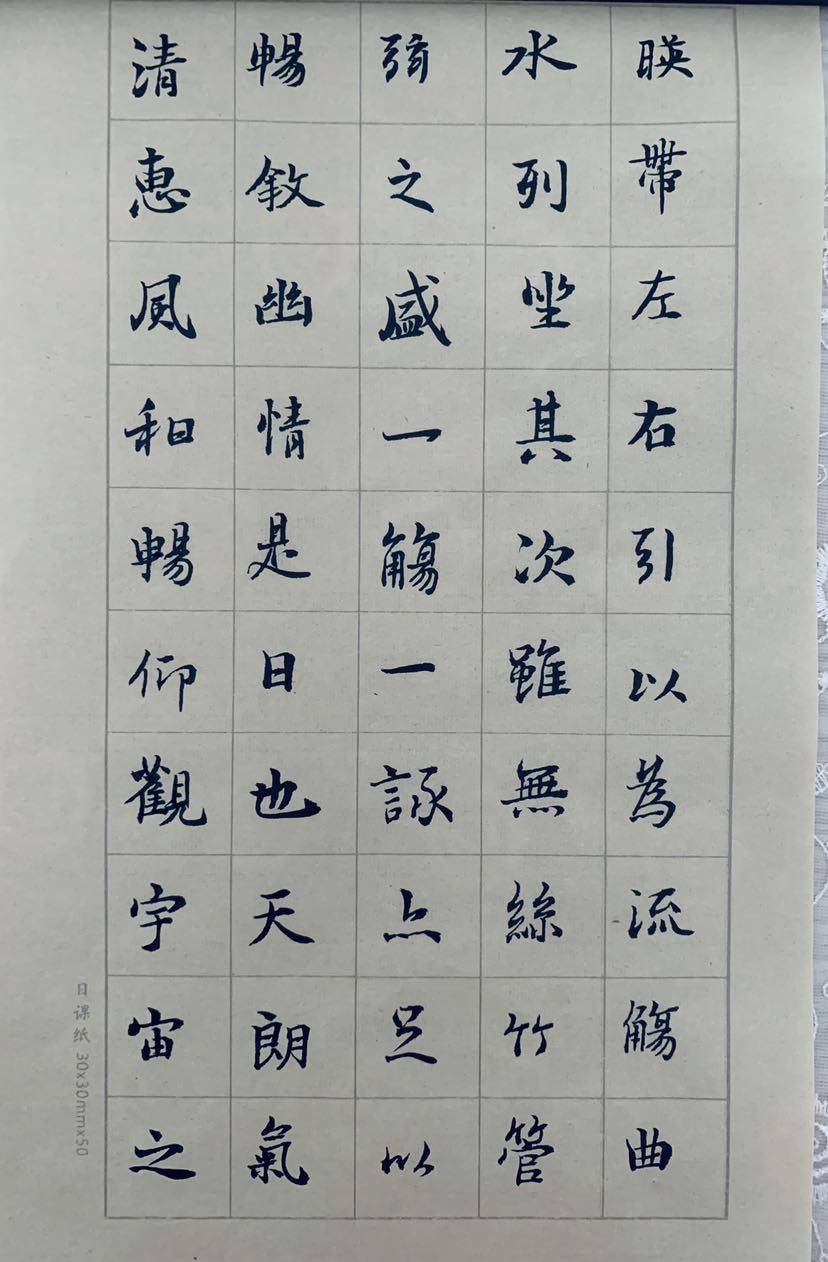 暎帶左右引以為流觴曲
水列坐其次雖無絲竹管
弦之盛一觴一詠亦足以
暢敘幽情是日也天朗氣
清惠風和暢仰觀宇宙之
日课纸 30x30mmx50